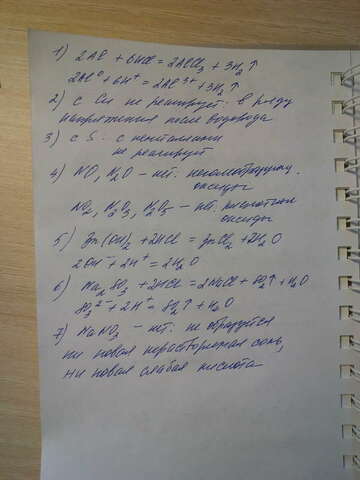 1) 2Al + 6HCl = 2AlCl₃ + 3H₂↑
2Al⁰ + 6H⁺ = 2Al³⁺ + 3H₂↑
2) с Cu не реагирует: в ряду
напряжения после водорода
3) с S - с неметаллами
не реагирует
4) NO, N₂O - нет. несолеобразующ.
оксиды
NO₂, N₂O₃, N₂O₅ - нет. кислотные
оксиды
5) Zn(OH)₂ + 2HCl = ZnCl₂ + 2H₂O
2OH⁻ + 2H⁺ = 2H₂O
6) Na₂SO₃ + 2HCl = 2NaCl + SO₂↑ + H₂O
SO₃²⁻ + 2H⁺ = SO₂↑ + H₂O
7) NaNO₃ - нет. не образуется
ни новая нерастворимая соль,
ни новая слабая кислота